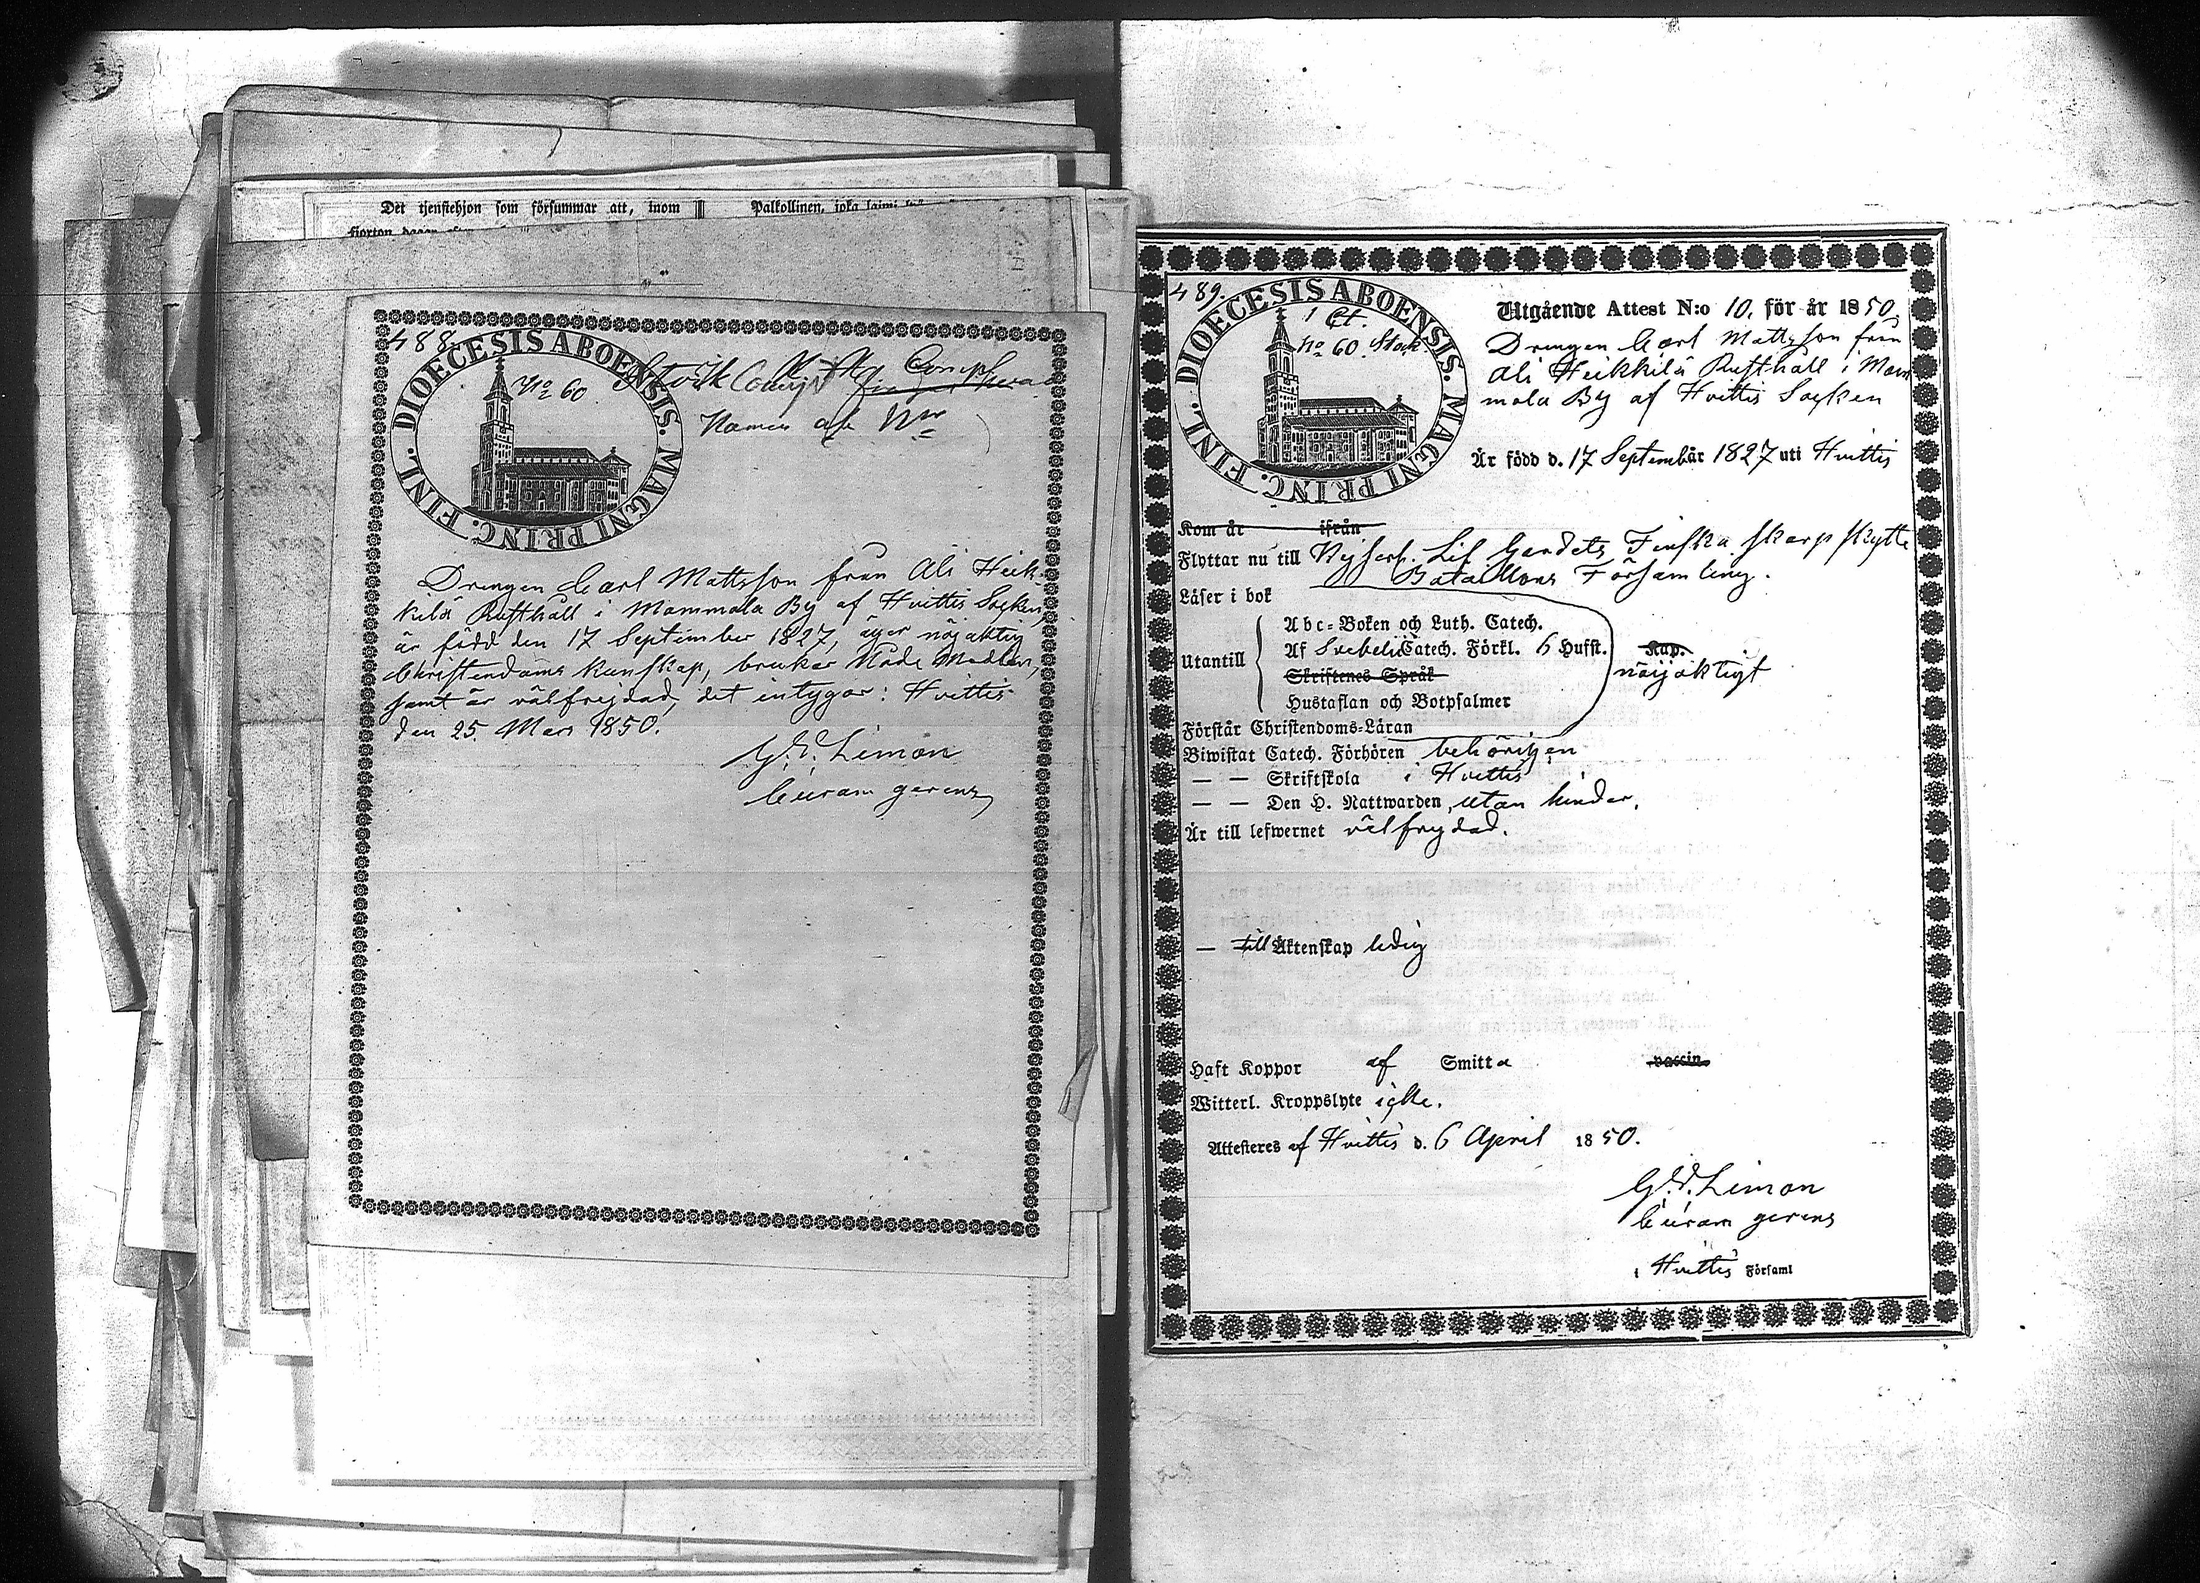 Det tjenstehjon som försummar att, inom
Palkollinen, joka laimi
fjorton dagar
488.
DIOECESIS ABOENSIS. MAGNI PRINC. FINL.
No 60
Namn
Drengen Carl Mattsson från Ali Heik-
kilä Rusthåll i Mommola By af Hvittis Socken,
är född den 17 September 1827, äger nöjaktig
Christendoms kunskap, brukar Nåde Medlen,
samt är välfrejdad, det intygar: Hvittis
den 25 Mars 1850.
G. V. Limon
Curam gerens
489.
DIOECESIS ABOENSIS. MAGNI PRINC. FINL.
1 Ct.
No 60. Stock.
Utgående Attest N:o 10. för år 1850.
Drengen Carl Mattsson från
Ali Heikkilä Rusthåll i Mom
mola By af Hvittis Socken
Är född d. 17 Septemb år 1827 uti Hvittis
Kom år ifrån
Flyttar nu till Kejserl. Lif Gardets Finska Skarpskytte
Bataillons Församling.
Läser i bok
Abc-Boken och Luth. Catech.
Utantill
Af Svebelii Catech. Förkl. 6 Hufst. Kap.
nöijaktigt
Skriftenes Språk
Hustaflan och Botpsalmer
Förstår Christendoms-Läran
Biwistat Catech. Förhören behörigen
— — Skriftskola i Hvittis
— — Den H. Nattwarden, utan hinder.
Är till lefwernet välfrejdad.
— till Äktenskap ledig
Haft Koppor af Smitta vaccin.
Witterl. Kroppslyte icke.
Attesteres af Hvittis d. 6 April 1850.
G. V. Limon
Curam gerens
i Hvittis Församl